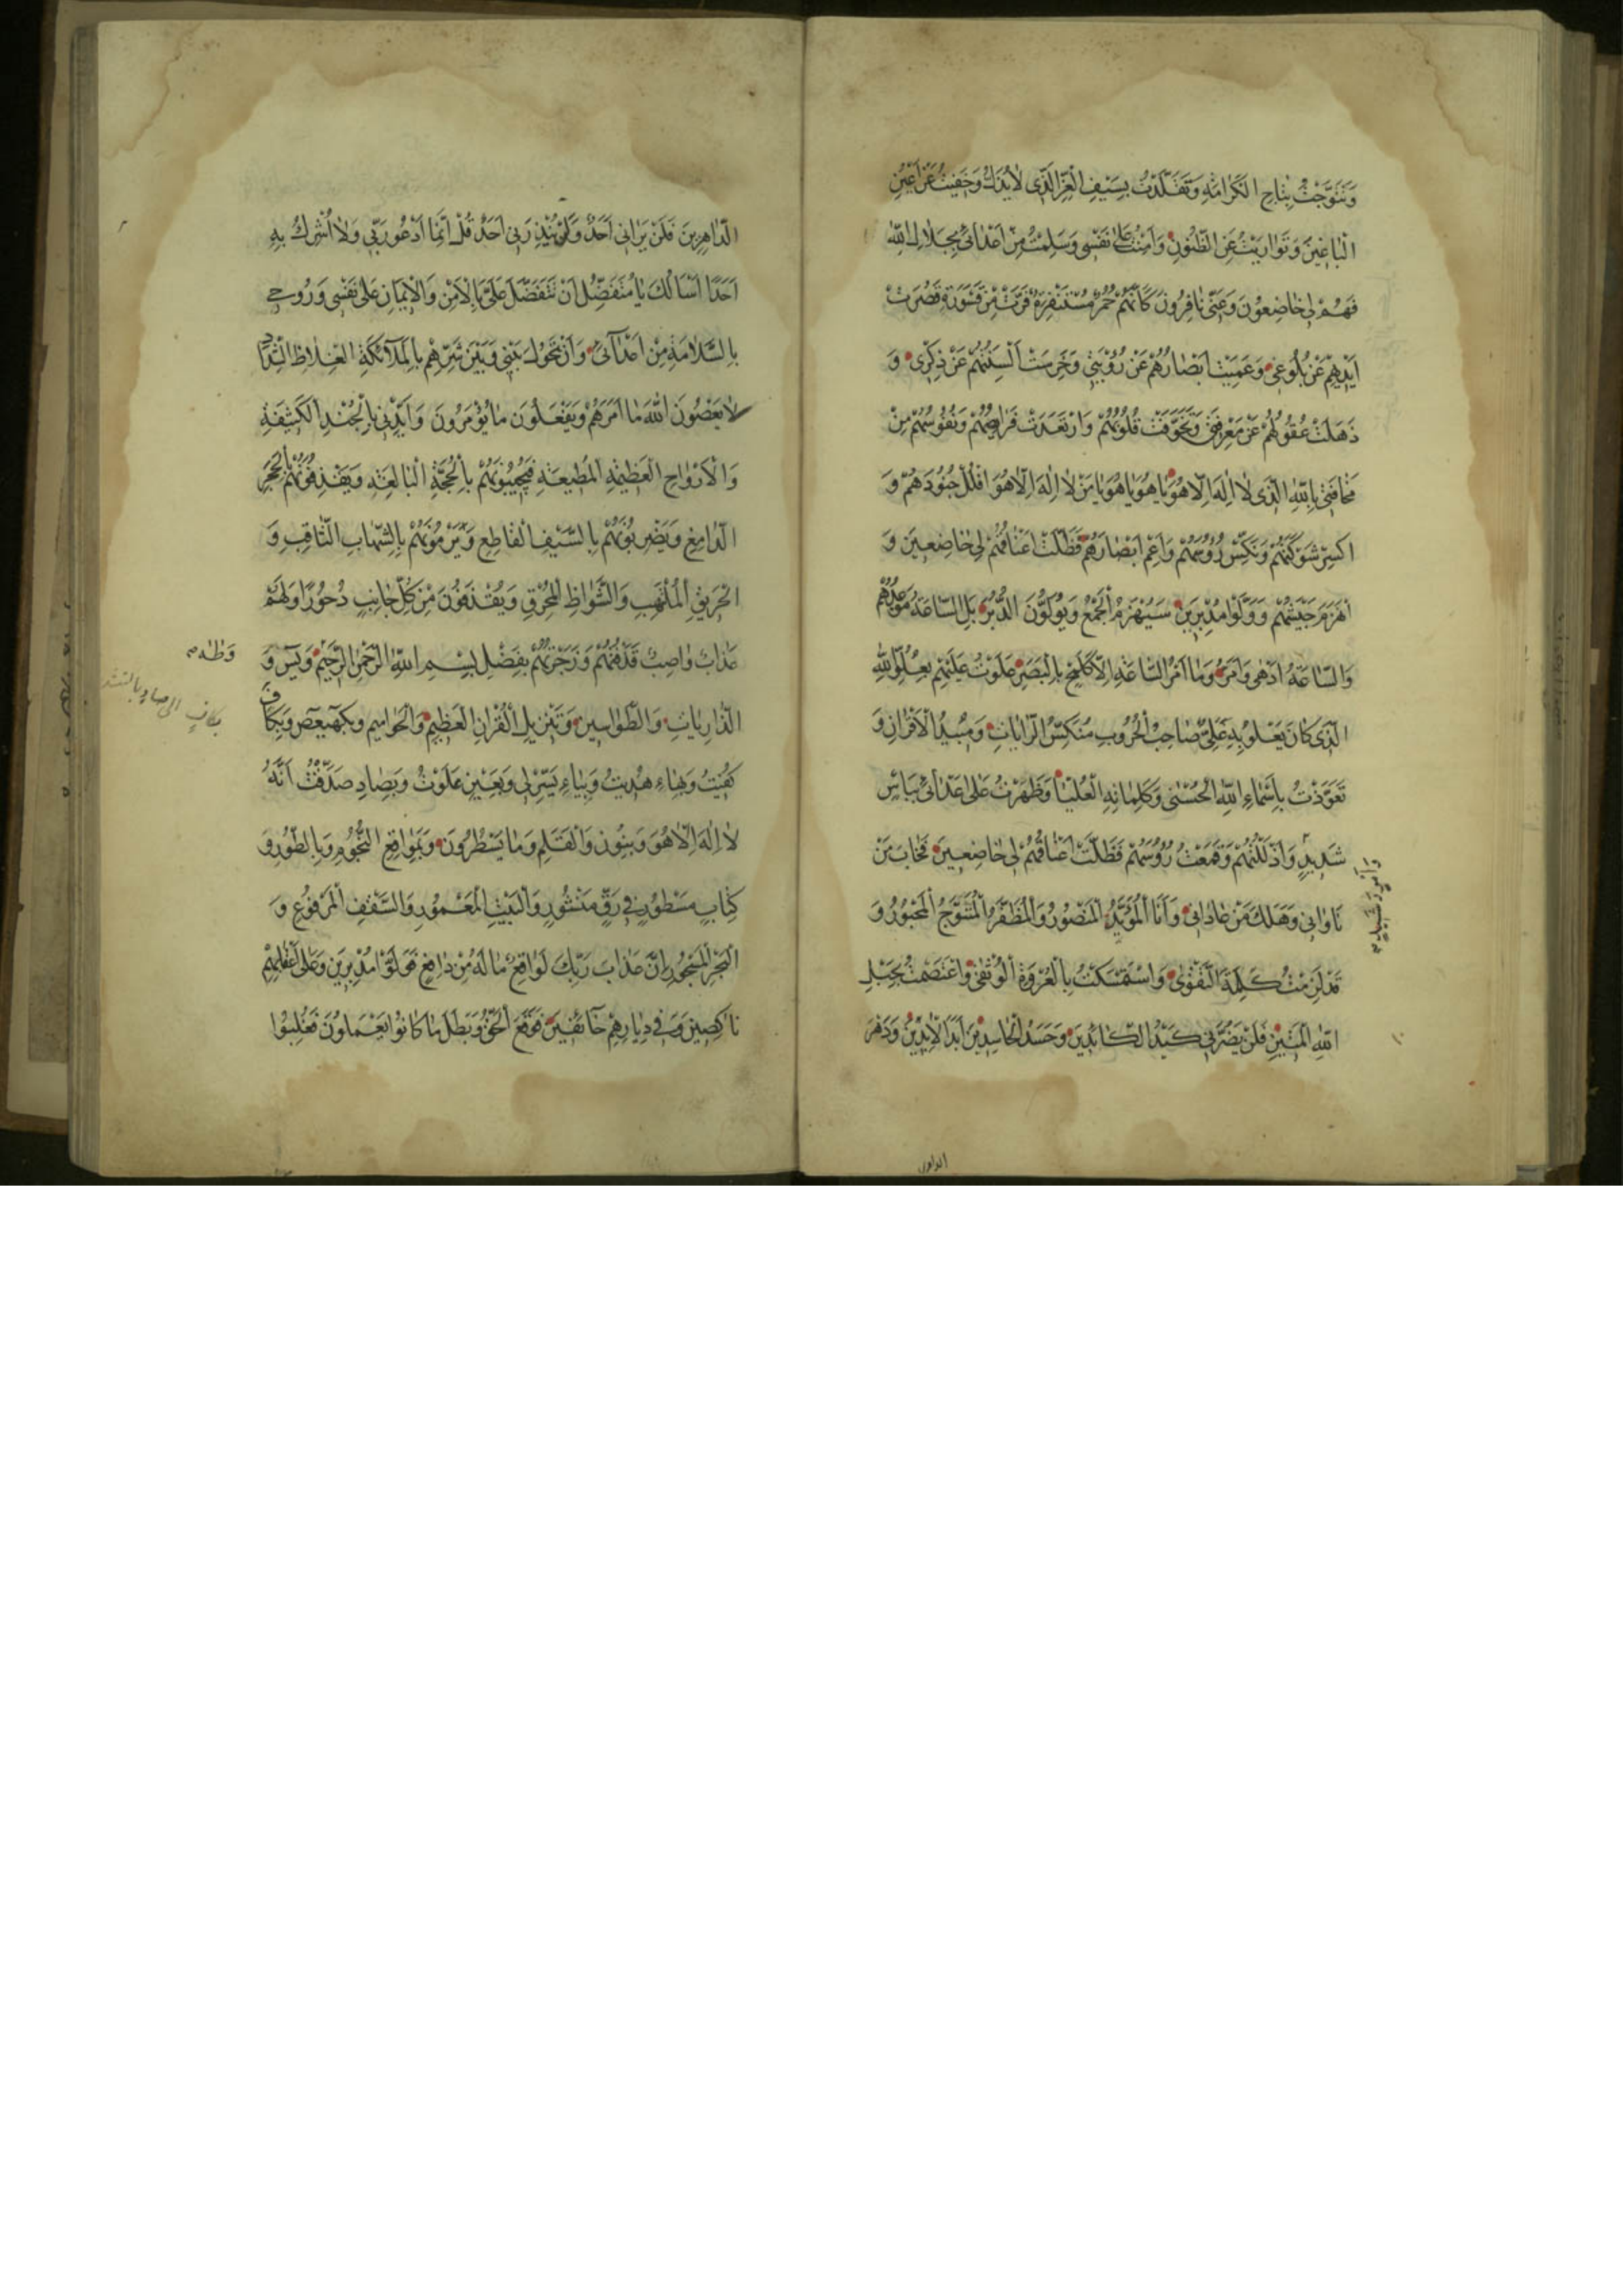 وَتَتَوَّجْتُ بِتَاجِ الْكَرَامَةِ وَتَقَلَّدْتُ بِسَيْفِ الْعِزِّ الَّذِي لَا يُدْرَكُ وَخَفِيتُ عَنْ أَعْيُنِ
الْبَاغِينَ وَتَوَارَيْتُ عَنِ الظُّنُونِ وَأَمِنْتُ عَلَى نَفْسِي وَسَلِمْتُ مِنْ أَعْدَائِي بِجَلَالِ اللهِ
فَهُمْ لِي خَاضِعُونَ وَعَنِّي نَافِرُونَ كَأَنَّهُمْ حُمُرٌ مُسْتَنْفِرَةٌ فَرَّتْ مِنْ قَسْوَرَةٍ قَصُرَتْ
أَيْدِيهِمْ عَنْ بُلُوغِي وَعَمِيَتْ أَبْصَارُهُمْ عَنْ رُؤْيَتِي وَخَرِسَتْ أَلْسِنَتُهُمْ عَنْ ذِكْرِي وَ
ذَهَلَتْ عُقُولُهُمْ عَنْ مَعْرِفَتِي وَتَخَوَّفَتْ قُلُوبُهُمْ وَارْتَعَدَتْ فَرَائِصُهُمْ وَنُفُوسُهُمْ مِنْ
مَخَافَتِي بِاللهِ الَّذِي لَا إِلَهَ إِلَّا هُوَ يَا هُوَ يَا هُوَ يَا مَنْ لَا إِلَهَ إِلَّا هُوَ افْلُلْ جُنُودَهُمْ وَ
اكْسِرْ شَوْكَتَهُمْ وَنَكِّسْ رُؤُسَهُمْ وَأَعْمِ أَبْصَارَهُمْ فَظَلَّتْ أَعْنَاقُهُمْ لِي خَاضِعِينَ وَ
انْهَزَمَ جَيْشُهُمْ وَوَلَّوْا مُدْبِرِينَ سَيُهْزَمُ الْجَمْعُ وَيُوَلُّونَ الدُّبُرَ بَلِ السَّاعَةُ مَوْعِدُهُمْ
وَالسَّاعَةُ أَدْهَى وَأَمَرُّ وَمَا أَمْرُ السَّاعَةِ إِلَّا كَلَمْحٍ بِالْبَصَرِ عَلَوْتُ عَلَيْهِمْ بِعُلُوِّ اللهِ
الَّذِي كَانَ يَعْلُو بِهِ عَلِيٌّ صَاحِبُ الْحُرُوبِ مُنَكِّسُ الرَّايَاتِ وَمُبِيدُ الْأَقْرَانِ وَ
تَعَوَّذْتُ بِأَسْمَاءِ اللهِ الْحُسْنَى وَكَلِمَاتِهِ الْعُلْيَا وَظَهَرْتُ عَلَى أَعْدَائِي بِبَأْسٍ
شَدِيدٍ وَأَذْلَلْتُهُمْ وَقَمَعْتُ رُؤُسَهُمْ فَظَلَّتْ أَعْنَاقُهُمْ لِي خَاضِعِينَ فَخَابَ مَنْ
نَاوَانِي وَهَلَكَ مَنْ عَادَانِي وَأَنَا الْمُؤَيَّدُ الْمَنْصُورُ وَالْمُظَفَّرُ الْمُتَوَّجُ الْمَحْبُورُ وَ
قَدْ لَزِمْتُ كَلِمَةَ التَّقْوَى وَاسْتَمْسَكْتُ بِالْعُرْوَةِ الْوُثْقَى وَاعْتَصَمْتُ بِحَبْلِ
اللهِ الْمَتِينِ فَلَنْ يَضُرَّنِي كَيْدُ الْكَائِدِينَ وَحَسَدُ الْحَاسِدِينَ أَبَدَ الْآبِدِينَ وَدَهْرَ
الداهرين
الدَّاهِرِينَ فَلَنْ يَرَانِي أَحَدٌ وَلَنْ يُنْذِرَنِي أَحَدٌ قُلْ إِنَّمَا أَدْعُو رَبِّي وَلَا أُشْرِكُ بِهِ
أَحَدًا أَسْأَلُكَ يَا مُتَفَضِّلُ أَنْ تَتَفَضَّلَ عَلَيَّ بِالْأَمْنِ وَالْإِيمَانِ عَلَى نَفْسِي وَرُوحِي
بِالسَّلَامَةِ مِنْ أَعْدَائِي وَأَنْ تَحُولَ بَيْنِي وَبَيْنَ شَرِّهِمْ بِالْمَلَائِكَةِ الْغِلَاظِ الشِّدَادِ
لَا يَعْصُونَ اللهَ مَا أَمَرَهُمْ وَيَفْعَلُونَ مَا يُؤْمَرُونَ وَأَيِّدْنِي بِالْجُنْدِ الْكَثِيفَةِ
وَالْأَرْوَاحِ الْعَظِيمَةِ الْمُطِيعَةِ فَيُجِيبُونَهُمْ بِالْحُجَّةِ الْبَالِغَةِ وَيَقْذِفُونَهُمْ بِالْحَجَرِ
الدَّامِغِ وَيَضْرِبُونَهُمْ بِالسَّيْفِ الْقَاطِعِ وَيَرْمُونَهُمْ بِالشِّهَابِ الثَّاقِبِ وَ
الْحَرِيقِ الْمُلْتَهِبِ وَالشَّوَاظِ الْمُحْرِقِ وَيُقْذَفُونَ مِنْ كُلِّ جَانِبٍ دُحُورًا وَلَهُمْ
عَذَابٌ وَاصِبٌ قَذَفْتُهُمْ وَزَجَرْتُهُمْ بِفَضْلِ بِسْمِ اللهِ الرَّحْمَنِ الرَّحِيمِ وَيس وَ
وَطٰهٰ
الذَّارِيَاتِ وَالطَّوَاسِينِ وَتَنْزِيلِ الْقُرْآنِ الْعَظِيمِ وَالْحَوَامِيمِ وَبِكهيعص وَبِكَافٍ
كُفِيتُ وَبِهَاءٍ هُدِيتُ وَبِيَاءٍ يُسِّرَ لِي وَبِعَيْنٍ عَلَوْتُ وَبِصَادٍ صَدَّقْتُ أَنَّهُ
لَا إِلَهَ إِلَّا هُوَ وَبِنُون وَالْقَلَمِ وَمَا يَسْطُرُونَ وَبِمَوَاقِعِ النُّجُومِ وَبِالطُّورِ وَ
كِتَابٍ مَسْطُورٍ فِي رَقٍّ مَنْشُورٍ وَالْبَيْتِ الْمَعْمُورِ وَالسَّقْفِ الْمَرْفُوعِ وَ
الْبَحْرِ الْمَسْجُورِ إِنَّ عَذَابَ رَبِّكَ لَوَاقِعٌ مَا لَهُ مِنْ دَافِعٍ فَوَلَّوْا مُدْبِرِينَ وَعَلَى أَعْقَابِهِمْ
نَاكِصِينَ وَفِي دِيَارِهِمْ خَائِفِينَ فَوَقَعَ الْحَقُّ وَبَطَلَ مَا كَانُوا يَعْمَلُونَ فَغُلِبُوا